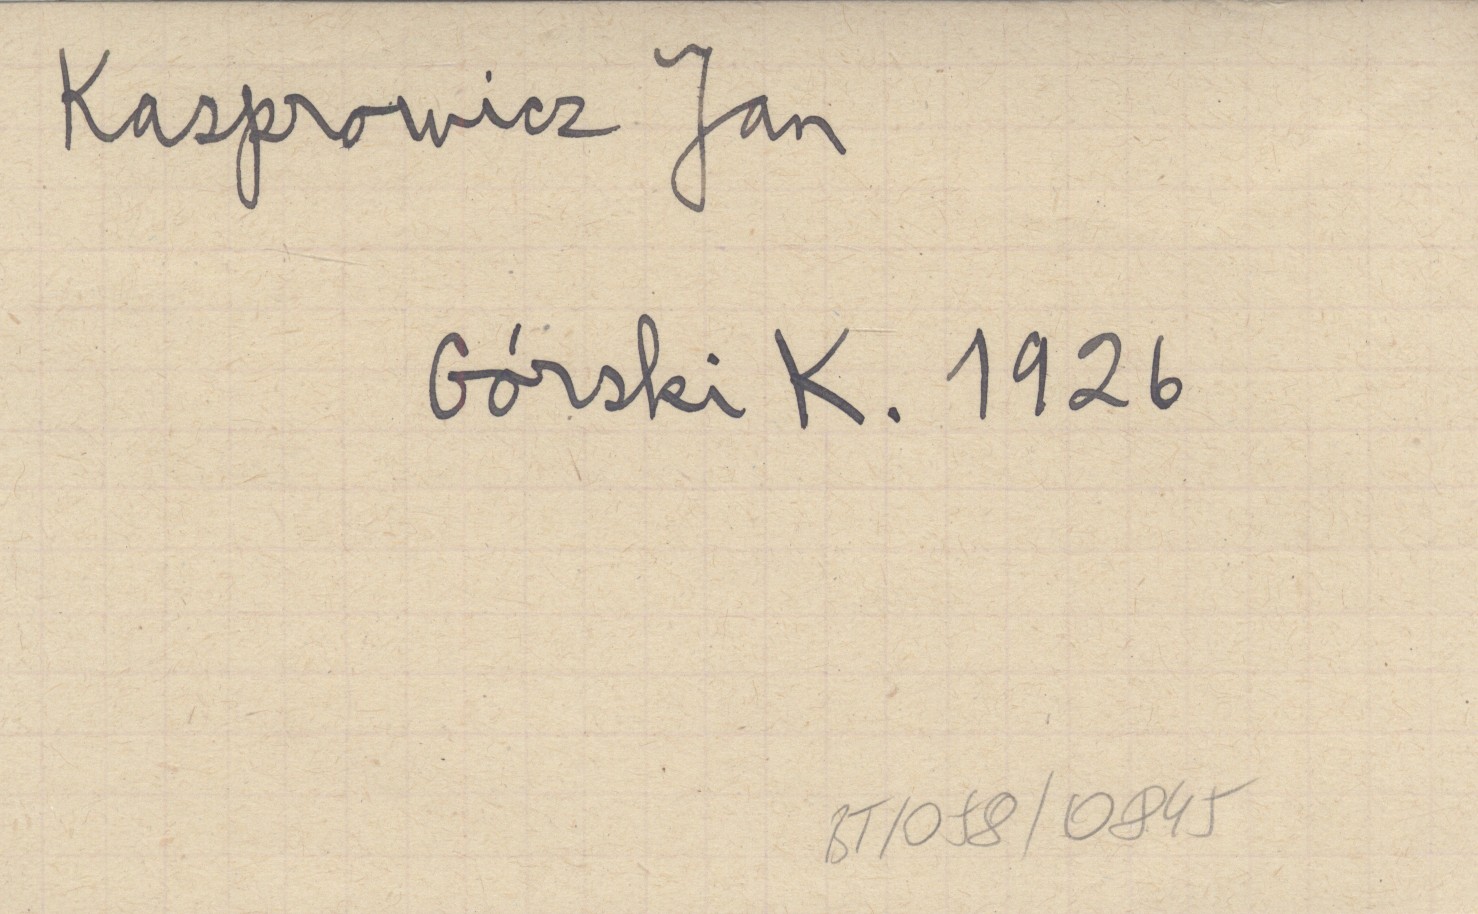 Kasprowicz Jan
Górski K. 1926
BT/058/0845